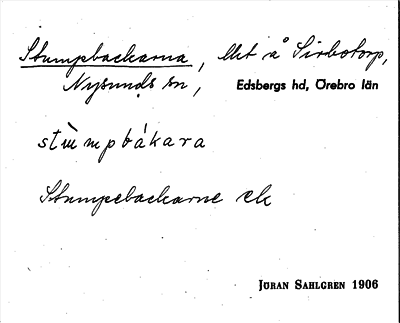 Stumpbackarna, llbt å Sirbotorp,
Nysunds sn, Edsbergs hd, Örebro län
stu̇̀mpbákara
Stumpebackarne ek
JÖRAN SAHLGREN 1906